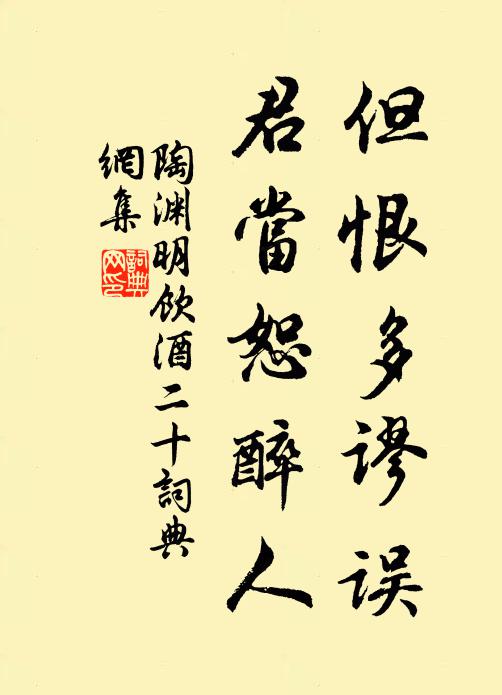 但恨多謬误
君當恕醉人
陶渊明饮酒二十詞典
網集
詞典网印